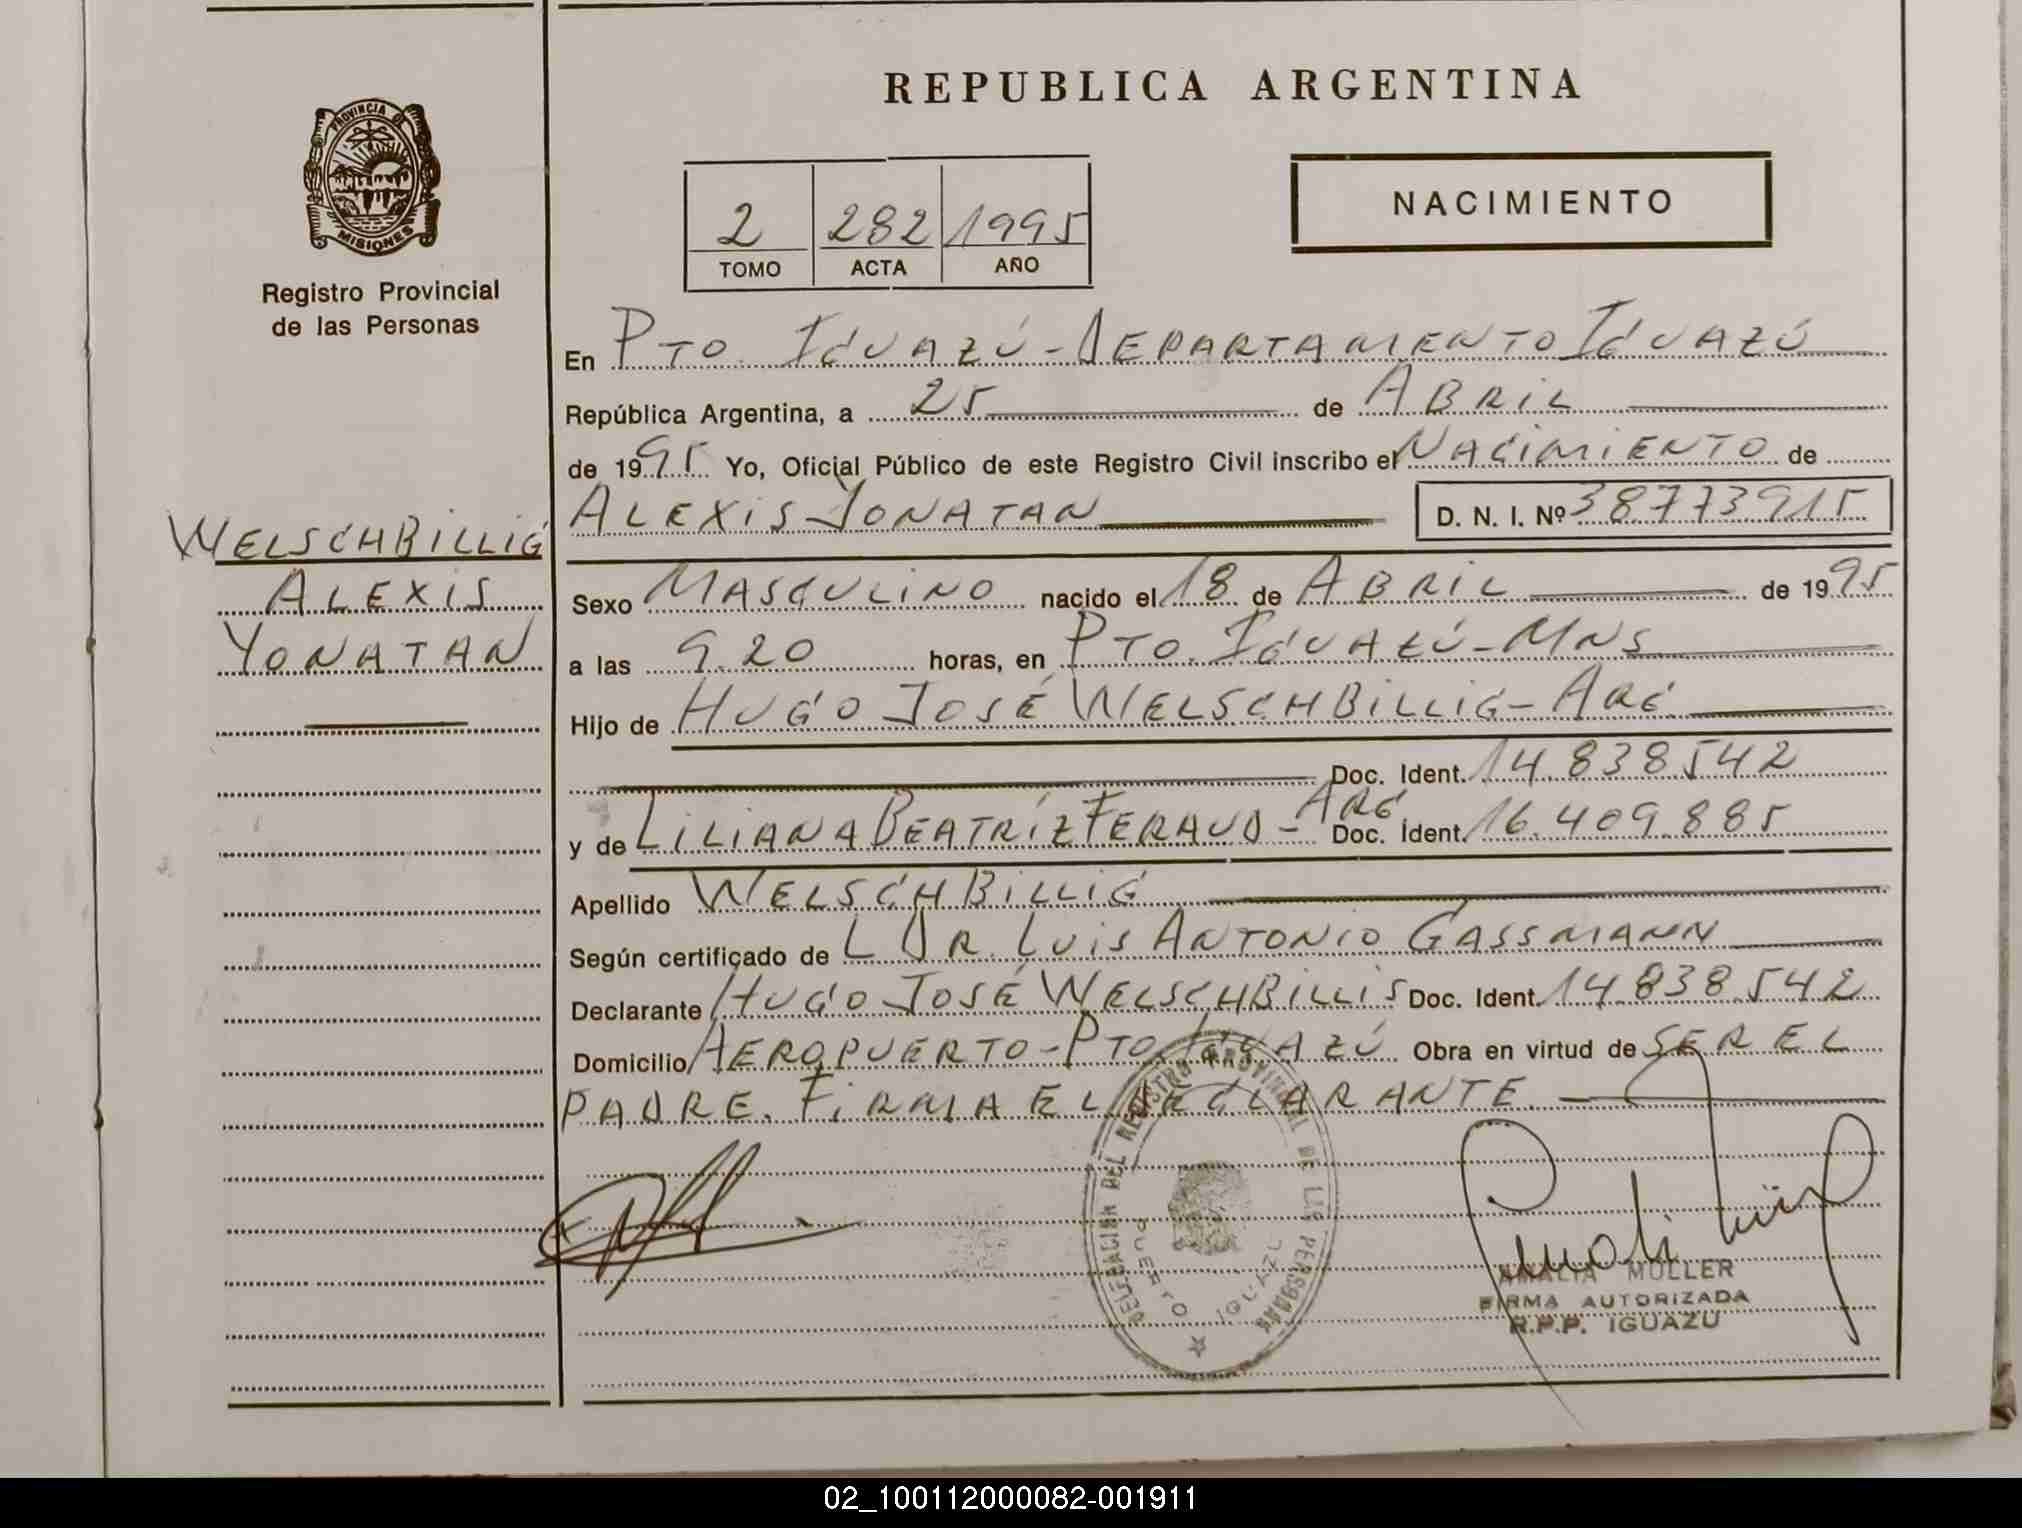 REPUBLICA ARGENTINA
PROVINCIA DE
MISIONES
Registro Provincial
de las Personas
NACIMIENTO
2 282 1995
TOMO ACTA AÑO
En PTO. IGUAZÚ - DEPARTAMENTO IGUAZÚ
República Argentina, a 25 de ABRIL
de 1995 Yo, Oficial Público de este Registro Civil inscribo el NACIMIENTO de
ALEXIS YONATAN D. N. I. Nº 38773915
WELSCHBILLIG
ALEXIS
YONATAN
Sexo MASCULINO nacido el 18 de ABRIL de 1995
a las 9.20 horas, en PTO. IGUAZÚ - MNS
Hijo de HUGO JOSÉ WELSCHBILLIG - ARG
Doc. Ident. 14.838.542
y de LILIANA BEATRÍZ FERAUD - ARG Doc. Ident. 16.409.885
Apellido WELSCHBILLIG
Según certificado de L DR. LUIS ANTONIO GASSMANN
Declarante HUGO JOSÉ WELSCHBILLIS Doc. Ident. 14.838.542
Domicilio AEROPUERTO - PTO. IGUAZÚ Obra en virtud de SER EL
PADRE. FIRMA EL DECLARANTE.
DELEGACION DEL REGISTRO PROVINCIAL DE LAS PERSONAS
PUERTO IGUAZU
AMALIA MULLER
FIRMA AUTORIZADA
R.P.P. IGUAZU
02_100112000082-001911